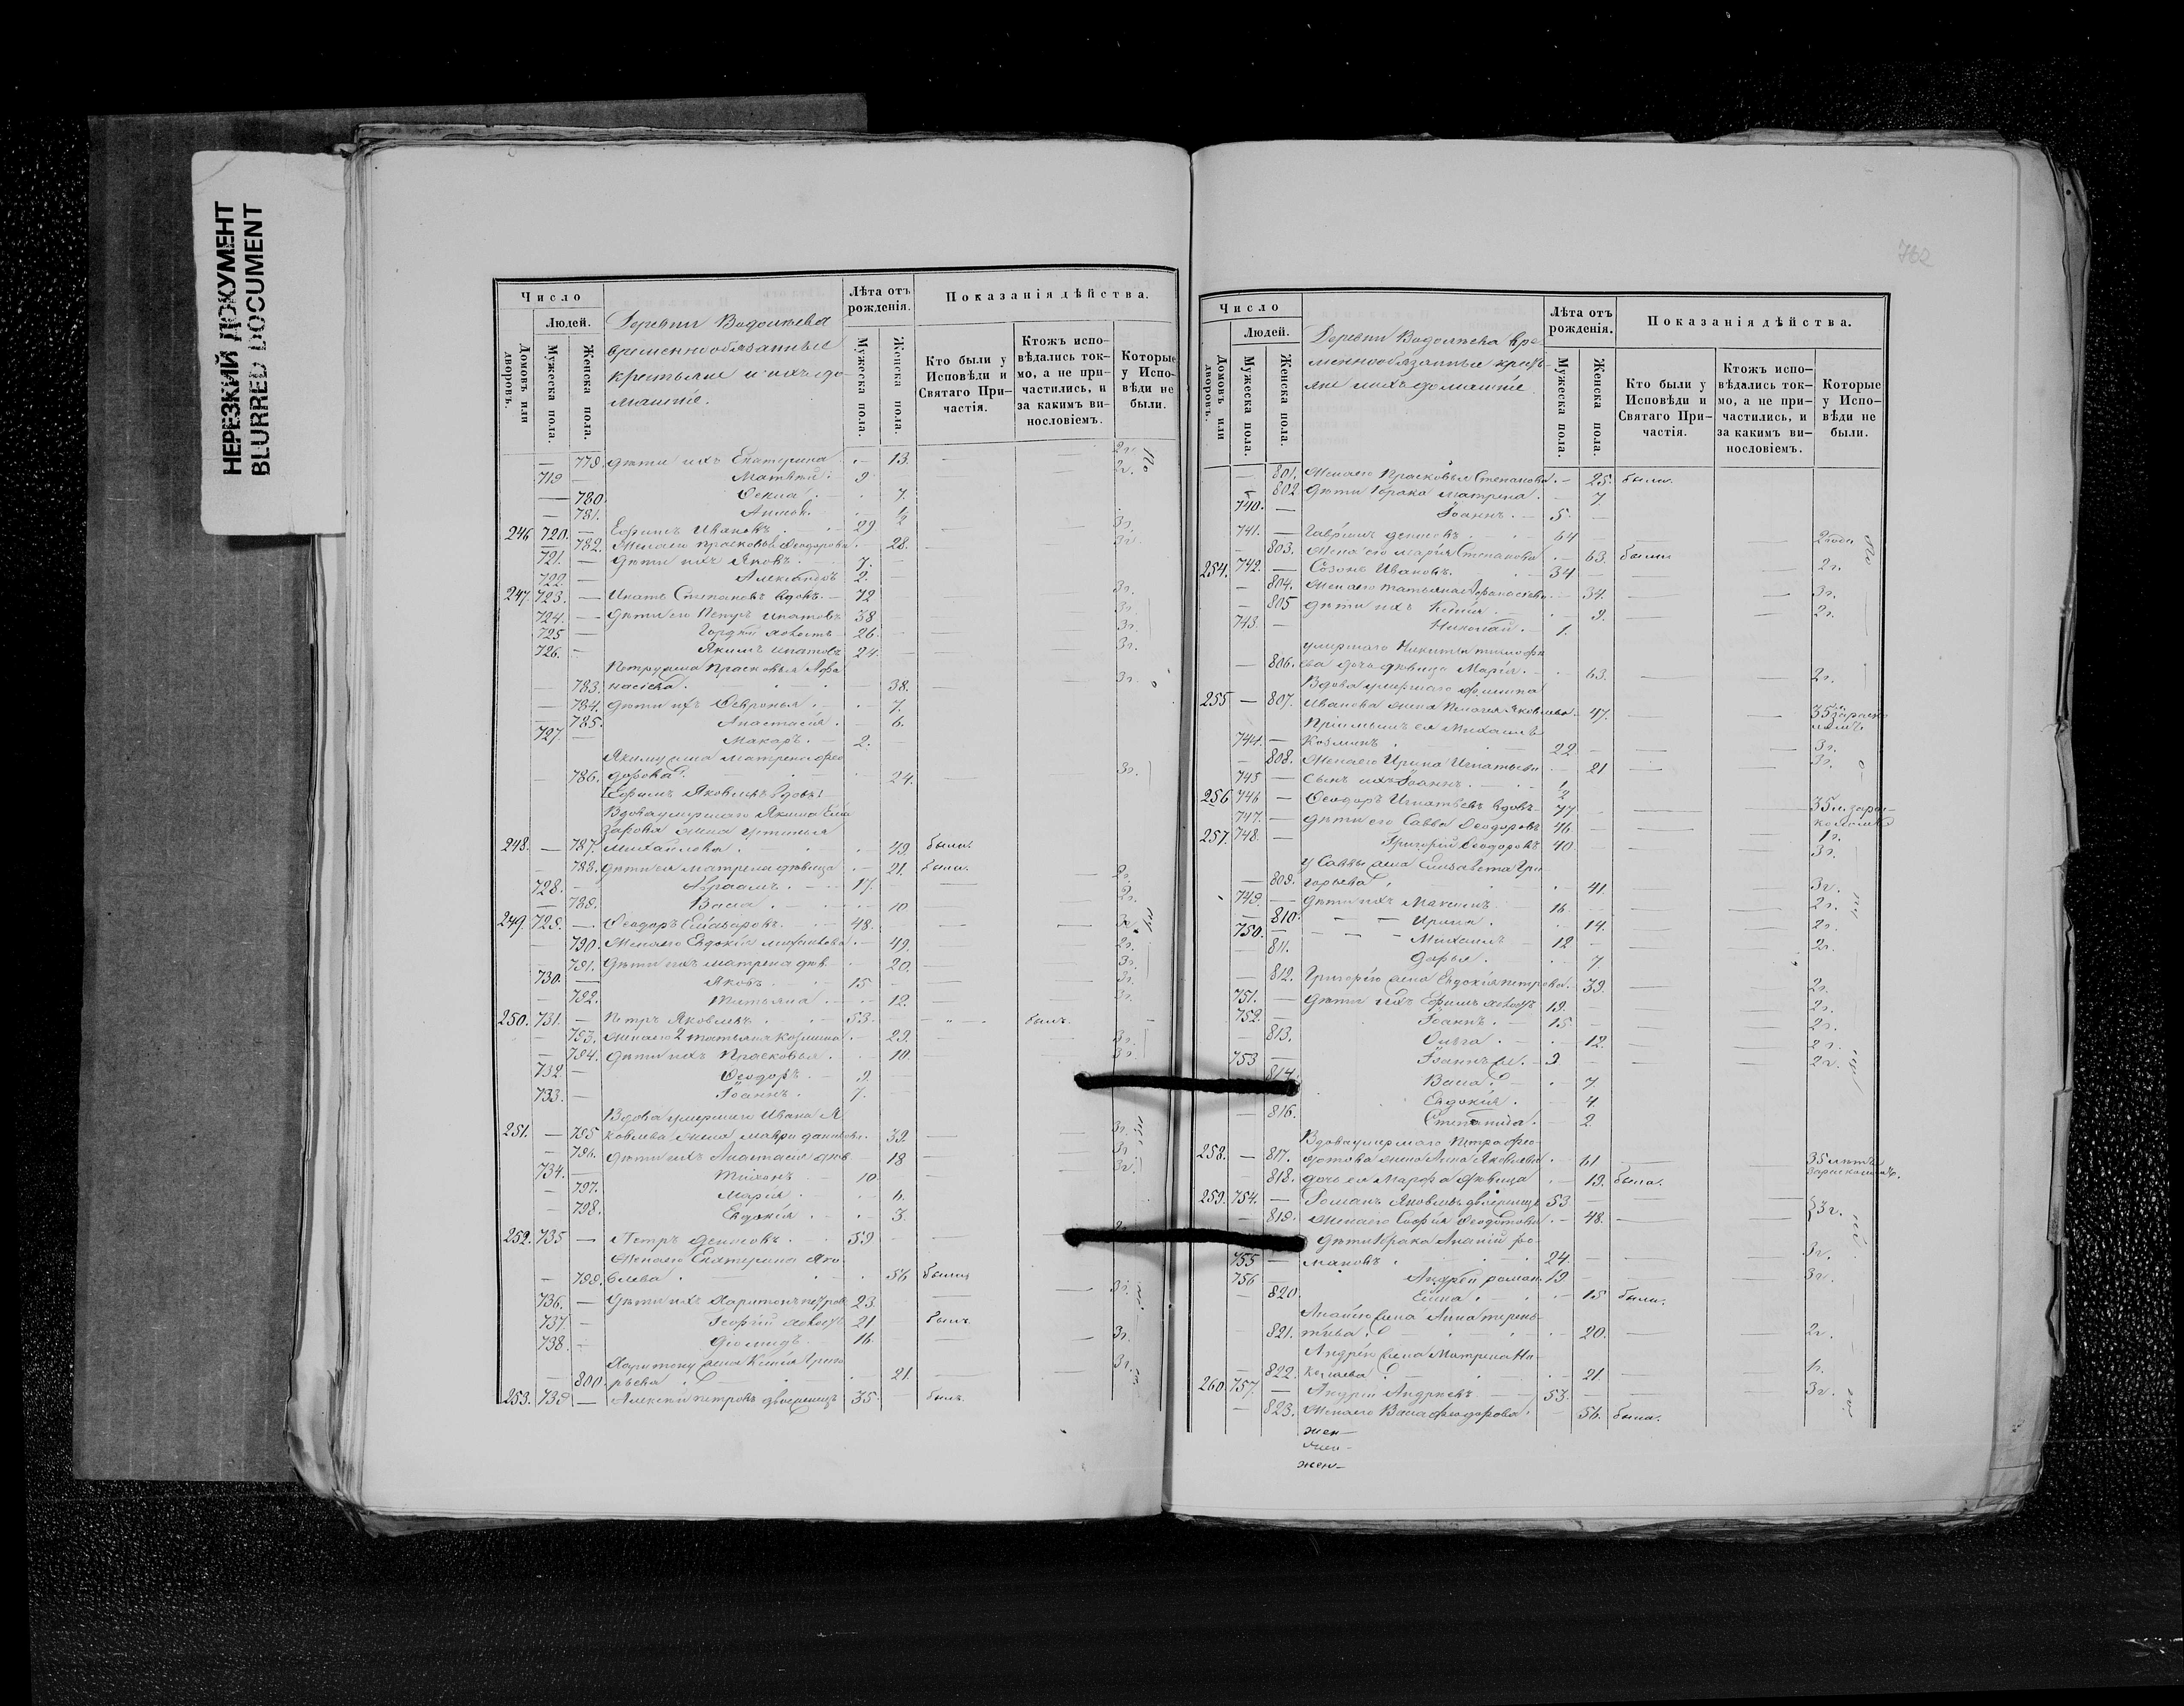 НЕРЕЗКИЙ ДОКУМЕНТ
BLURRED DOCUMENT
Число
Людей.
Домовъ или дворовъ.
Мужеска пола.
Женска пола.
Деревни
временнообязанные
крестьяне и ихъ до-
машніе.
Лѣта отъ рожденія.
Мужеска пола.
Женска пола.
Показанія дѣйства.
Кто были у Исповѣди и Святаго При-частія.
Ктожъ испо-вѣдались ток-мо, а не при-частились, и за какимъ ви-нословіемъ.
Которые у Испо-вѣди не были.
— 779. дѣти ихъ Екатерина 13. — 2г.
719 — Матвей 9 — 2г.
— 780. Ѳекла 7.
— 781. ½
246 720. — Ефимъ Ивановъ 29 — 3г.
— 782. Жена его Прасковья Ѳеодорова 28. —
721. — дѣти ихъ Яковъ 7. —
722. — Александръ 2. —
247. 723. — Ипатъ Степановъ вдовъ 72 — 3г.
724. — дѣти его Петръ Ипатовъ 38 — 3г.
725 — Гордей холостъ 26. — 3г.
726. — Якимъ Ипатовъ 24. — 3г.
Петру жена Прасковья Афа
— 783. насіева. 38. — 3г.
— 784. дѣти ихъ Ѳевронья 7.
— 785. Анастасія 6.
727. — Макаръ. 2. —
Якиму жена Матрена Фео
— 786. дорова. 24. — 3г.
Ефимъ Яковлевъ вдовъ
Вдова умершаго Якима Ели
зарова жена Устинья
248. — 787. Михайлова. 49. была.
— 788. дѣти ея Матрена дѣвица 21. была.
728. — Авраамъ. 17. — 2г.
— 789. Васса 10 — 2г.
249. 729. — Ѳеодоръ Елизаровъ. 48. — 3г.
— 790. Жена его Евдокія Михайлова 49. — 2г.
— 791. дѣти ихъ Матрена дѣв. 20. — 3г.
730. — Яковъ 15 — 3г.
— 792. Татьяна 12. — 3г.
250. 731. — Петръ Яковлевъ 53. — былъ.
— 793. жена его 2 Татьяна Козмина 29. — 3г.
— 794. дѣти ихъ Прасковья 10 — 3г.
732. — Ѳеодоръ. 9. —
733. — Іоаннъ. 7. —
Вдова умершаго Ивана Я
251. — 795 ковлева жена Мавра 39. — 3г.
— 796. дѣти ихъ Анастасія дѣв. 18 — 3г.
734. — Тихонъ 10 — 3г.
— 797. Марія 6.
— 798. Евдокія 3.
252. 735 — Петръ Денисовъ. 59 — 2г.
Жена его Екатерина Яко
— 799. влева. 56 была
736. — дѣти ихъ Харитонъ Петров 23. — 3г.
737. — Георгій холостъ 21 былъ
738. — Діомидъ 16. — 3г.
Харитону жена Ксенія Григо
— 800. рьева 21. — 3г.
253. 739 — Алексѣй Петровъ двоеженецъ 35 — былъ.
762
Число
Людей.
Домовъ или дворовъ.
Мужеска пола.
Женска пола.
Деревни вре-
меннообязанные кресть-
яне и ихъ домашніе
Лѣта отъ рожденія.
Мужеска пола.
Женска пола.
Показанія дѣйства.
Кто были у Исповѣди и Святаго При-частія.
Ктожъ испо-вѣдались ток-мо, а не при-частились, и за какимъ ви-нословіемъ.
Которые у Испо-вѣди не были.
— 801. Жена его Прасковья Степанова 25. была.
— 802 дѣти 1 брака Матрена. 7.
740. — Іоаннъ. 5. —
741. — Гаврілъ Денисовъ 64 — 2 года
— 803. Жена его Марія Степанова 63. была
254. 742. — Созонъ Ивановъ. 34 — 2г.
— 804. Жена его Татьяна Афанасіева 34. — 3г.
— 805 дѣти ихъ 9. — 2г.
743. — Николай. 1. —
умершаго Никиты Тимофе
— 806. ева дочь дѣвица Марія. 63. — 2г.
Вдова умершаго
255 — 807. Иванова жена Пелагея Яковлева. 47. — 35 л.
Пріемышъ ея Михаилъ
744. — Козминъ 22 — 3г.
— 808. Жена его Ирина Игнатьева 21 — 3г.
745 — Сынъ ихъ Іоаннъ. ½
256 746 — Ѳеодоръ Игнатьевъ вдовъ 77 — 35 л.
747. — дѣти его Савва Ѳеодоровъ 46 — 1г.
257. 748. — Григорій Ѳеодоровъ 40 — 3г.
у Саввы жена Елизавета Гри
— 809. горьева 41. — 3г.
749. — дѣти ихъ Максимъ 16. — 2г.
— 810. Ирина 14. — 2г.
750. — Михаилъ 12 — 2г.
— 811. Дарья. 7.
— 812. Григорію жена Евдокія Петрова. 39. — 2г.
751. — дѣти ихъ Ефимъ холостъ 19. — 2г.
752 — Іоаннъ 15 — 2г.
— 813. Ольга 12. — 2г.
753 — Іоаннъ 9 — 2г.
814. Васса 7.
Евдокія. 4.
— 816. Степанида. 2.
Вдова умершаго Петра Фео-
258. — 817. дотова жена Анна Яковлева 61 — 35 лѣтъ
— 818. дочь ея Марфа дѣвица 19. была.
259. 754. — Романъ Яковлевъ двоеженецъ 53 —
— 819. жена его Софія Ѳеодотова 48. — 3г.
дѣти 1 брака Ананій Ро-
755 — мановъ 24. — 3г.
756 — Андрей Роман. 19 — 3г.
— 820. Елена 15 была.
Ананію жена Анна Терень-
821. тьева 20. — 2г.
Андрею жена Матрена Ни-
— 822. 21. — 1г.
260. 757. — Андрей Андреевъ 53. — 3г.
— 823. Жена его Васса Феодорова. 56. была.
жен—
жен—
жен—